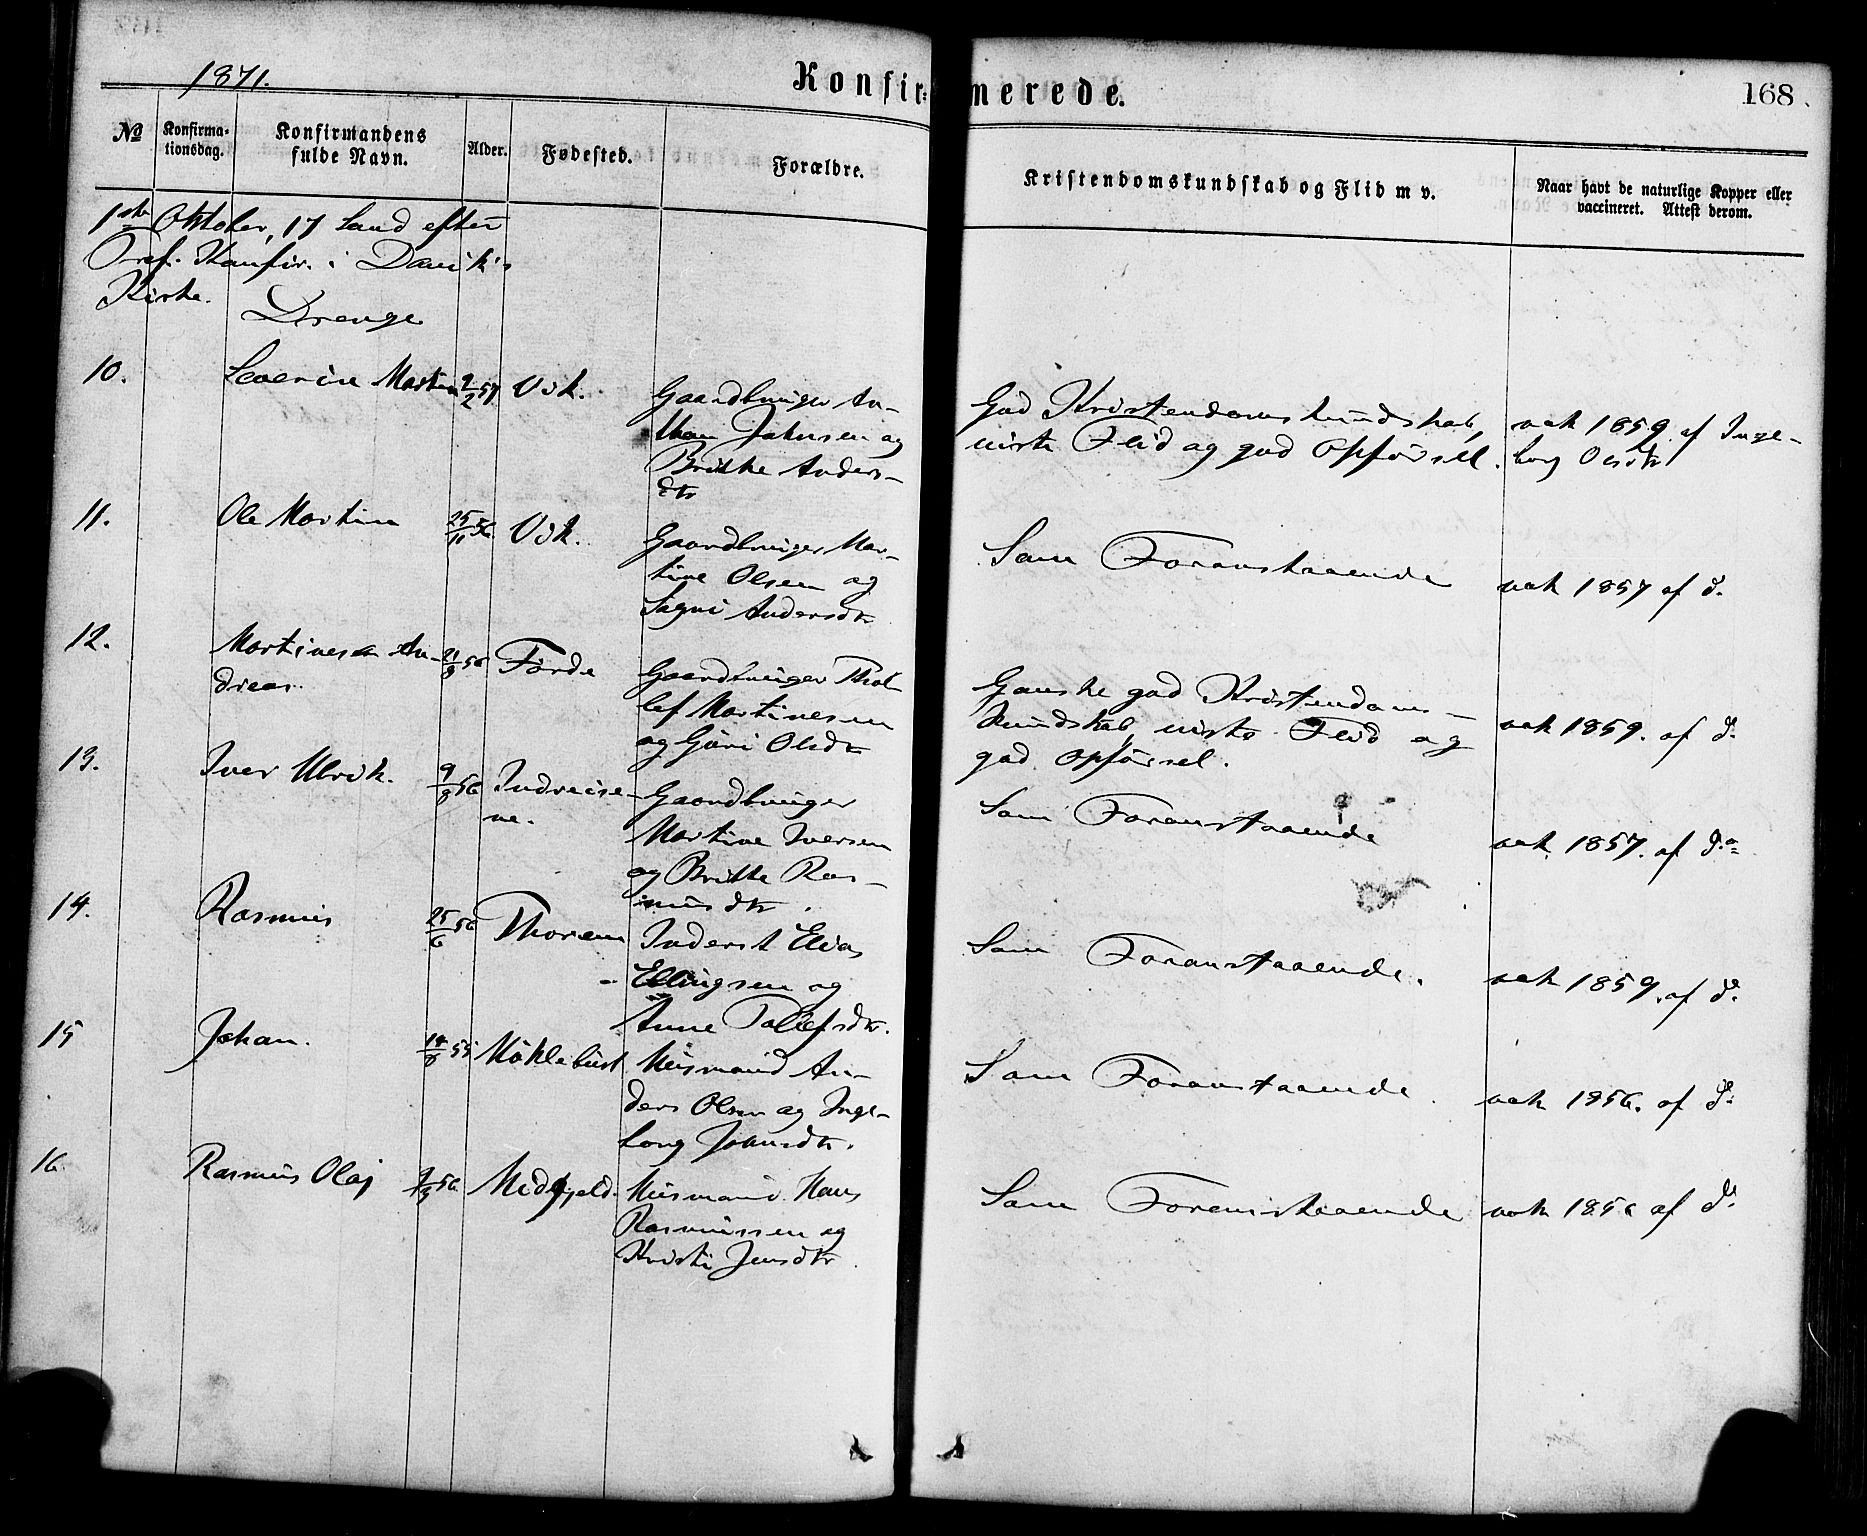 1871.
Konfir-
merede.
168
No
Konfirma-
tionsdag.
Konfirmandens
fulde Navn.
Alder.
Fødested.
Forældre.
Kristendomskundskab og Flid m v.
Naar havt de naturlige Kopper eller
vaccineret. Attest derom.
1ste Oktober, 17 Sønd efter
Tref. Konfir. i Davik's
Kirke.
Drenge
10.
Severin Martin
9/2 57
Vik.
Gaardbruger An-
thon Johnsen og
Brithe Anders-
dtr
God Kristendomskundskab,
uirste Flid og god Opførsel.
vak 1859. af Inge-
borg Olsdtr
11.
Ole Martin
25/11 56
Vik.
Gaardbruger Mar-
tine Olsen og
Sigri Andersdtr
Som Foranstaaende
vak 1857 af d.
12.
Martines An-
dreas.
21/8 56
Förde
Gaardbruger Thol-
lef Martinesen
og Göri Olsdtr
Ganske god Kristendoms-
kundskab, uirste Flid og
god Opførsel.
vak 1859. af d.
13.
Iver Ulrik.
9/8 56
Indreise-
ne.
Gaardbruger
Martine Iversen
og Brithe Ras-
musdtr.
Som Foranstaaende
vak 1857. af do
14.
Rasmus
25/6 56
Thorem
Inderst Elias
Ellingsen og
Anne Tollefsdtr.
Som Foranstaaende.
vak 1859. af d.
15
Johan.
14/8 55
Myklebust
Husmand An-
ders Olsen og Inge-
borg Johnsdtr.
Som Foranstaaende.
vak 1856. af d.
16
Rasmus Olaj
9/8 56
Midgjeld.
Husmand Hans
Rasmussen og
Kristi Jensdtr.
Som Foranstaaende
vak 1856 af d.